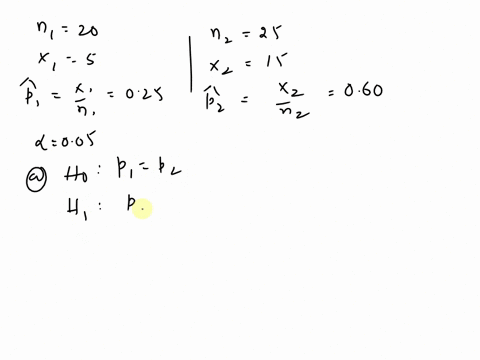 n₁ = 20
x₁ = 5
p̂₁ = x₁/n₁ = 0.25
α = 0.05
n₂ = 25
x₂ = 15
p̂₂ = x₂/n₂ = 0.60
ⓐ H₀ : p₁ = p₂
H₁ : p